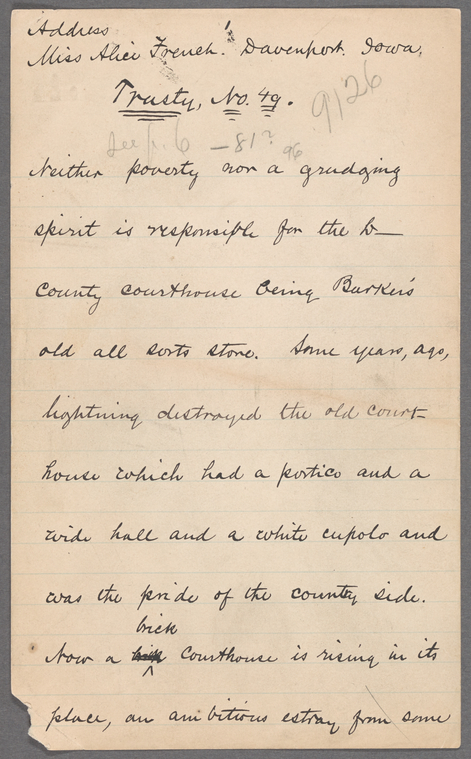 Address
Miss Alice French. Davenport. Iowa.
Trusty, No. 49.
9126
see p. 6 — 81? 96
Neither poverty nor a grudging
spirit is responsible for the L—
county courthouse being Barker's
old all sorts store. Some years, ago,
lightning destrayed the old court-
house which had a portico and a
wide hall and a white cupolo and
was the pride of the country side.
brick
Now a courthouse is rising in its
place, an ambitious estray from some